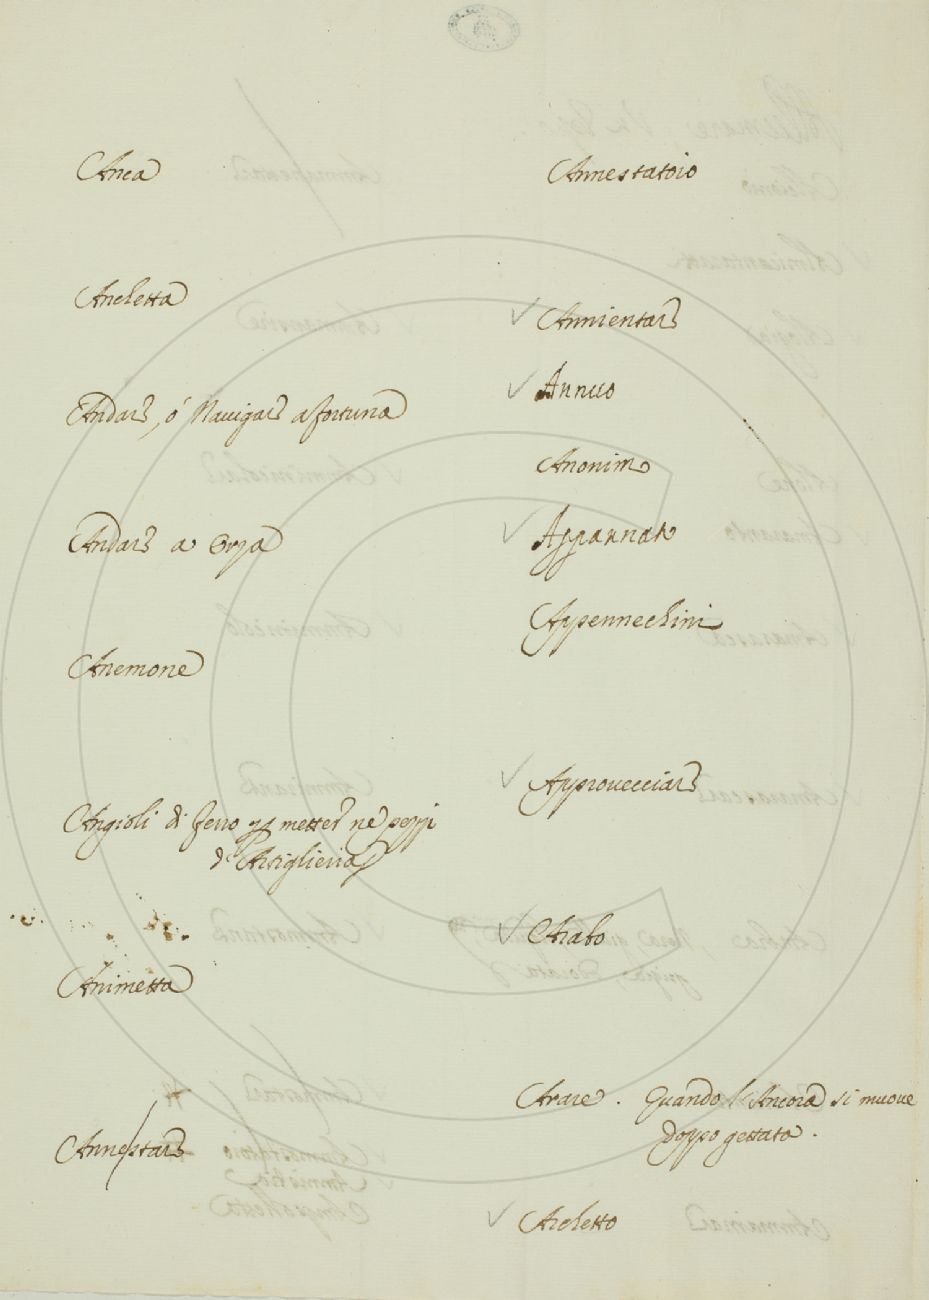 Anca
Ancletta
Andare, ó Nauigare a fortuna
Andare a Orza
Anemone
Angioli di ferro per metter ne pezzi
d'Artiglieria
Animetta
Annestare
Annestatoio
Annientare
Annuo
Anonimo
Appannato
Appennechini
Approuecciare
Arabo
Arare. Quando l'Ancora si muoue
doppo gettata.
Archetto